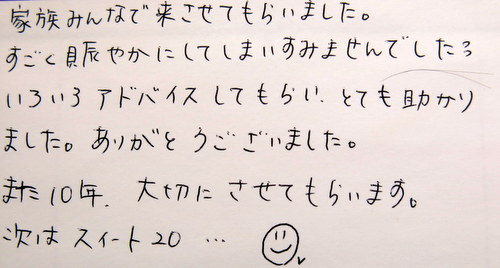 家族みんなで来させてもらいました。
すごく賑やかにしてしまいすみませんでしたろ
いろいろアドバイスしてもらい、とても助かり
ました。ありがとうございました。
また10年、大切にさせてもらいます。
次はスイート20…